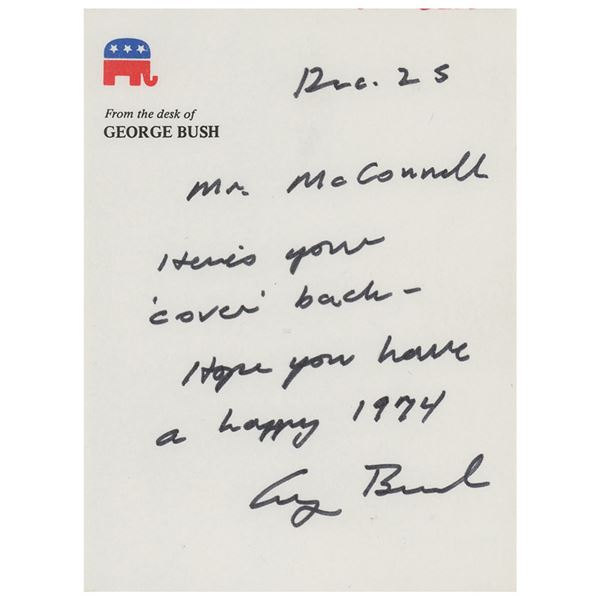 Dec. 25
From the desk of
GEORGE BUSH
Mr. McConnell
Here's your
'cover' back –
Hope you have
a happy 1974
George Bush